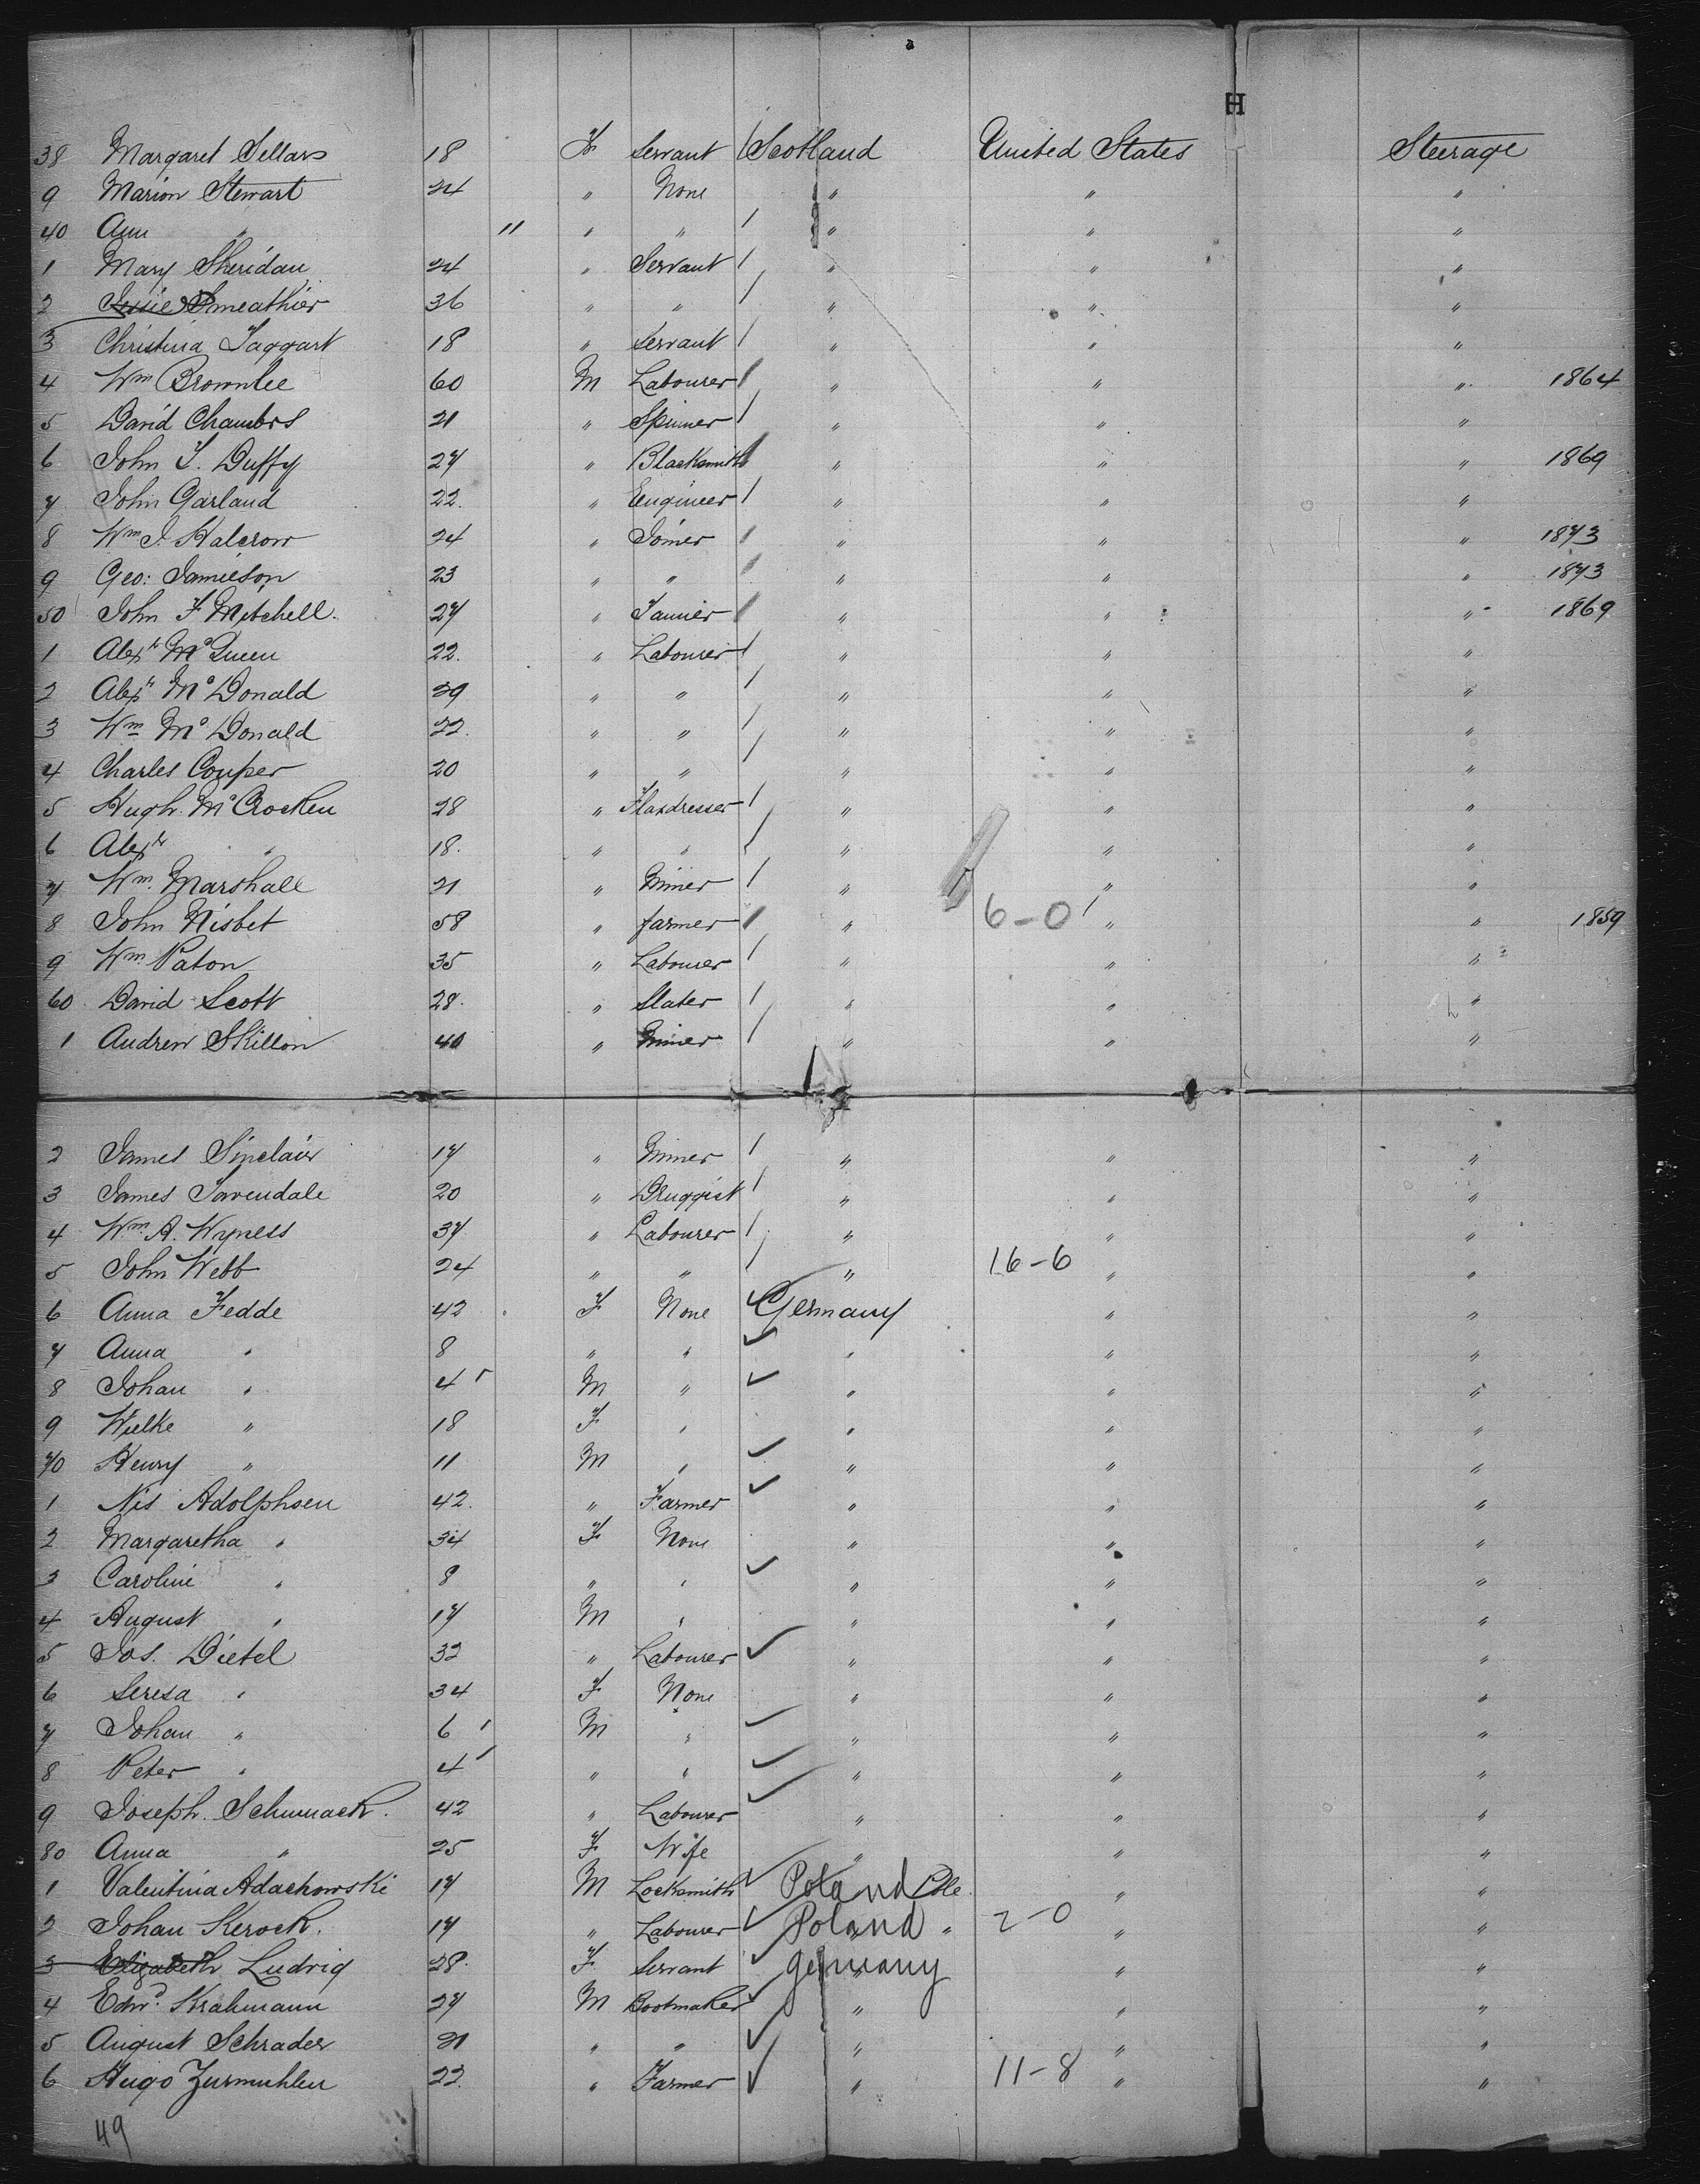 H
38 Margaret Sellars 18 F Servant Scotland United States Steerage
9 Marion Stewart 24 " None " " "
40 Ann " 11 " " " " "
1 Mary Sheridan 24 " Servant " " "
2 Smeathier 36 " " " " "
3 Christina Taggart 18 " Servant " " "
4 Wm Brownlee 60 M Labourer " " " 1864
5 David Chambers 21 " Spinner " " "
6 John T. Duffy 27 " Blacksmith " " " 1869
7 John Garland 22. " Engineer " " "
8 Wm J. Halcrow 24 " Joiner " " " 1873
9 Geo: Jamieson 23 " " " " " 1873
50 John F Mitchell. 27 " Tanner " " " 1869
1 Alexr McQueen 22. " Labourer " " "
2 Alexr McDonald 39 " " " " "
3 Wm McDonald 22. " " " " "
4 Charles Couper 20 " " " " "
5 Hugh McCrocken 28 " Flaxdresser " " "
6 Alexr " 18. " " " " "
7 Wm. Marshall 21 " Miner " " "
8 John Nisbet 58 " farmer " 6-0 " " 1859
9 Wm Paton 35 " Labourer " " "
60 David Scott 28. " Slater " " "
1 Andrew Skillon 40 " Miner " " "
2 James Sinclair 17 " Miner " " "
3 James Tavendale 20 " Druggist " " "
4 Wm. A. Wyness 37 " Labourer " " "
5 John Webb 24 " " " 16-6 " "
6 Anna Fedde 42 F None Germany " "
7 Anna " 8 " " " " "
8 Johan " 4 M " " " "
9 Wielke " 18 F " " " "
70 Henry " 11 M " " " "
1 Nis Adolphsen 42. " Farmer " " "
2 Margaretha " 34 F None " " "
3 Caroline " 8 " " " " "
4 August " 17 M " " " "
5 Jos. Dietel 32 " Labourer " " "
6 Seresa " 34 F None " " "
7 Johan " 6 M " " " "
8 Peter " 4 " " " " "
9 Joseph. 42 " Labourer " " "
80 Anna " 25 F Wife " " "
1 Valentina Adachowski 17 M Locksmith Poland Pole. " "
2 Johan Kerock. 17 " Labourer Poland " 2-0 " "
3 Elizabeth Ludvig 28. F Servant Germany " "
4 Edwd. Krahmann 27 M Bootmaker " " "
5 August Schrader 21 " " " " "
6 Hugo Zurmuhlen 22. " Farmer " 11-8 " "
49